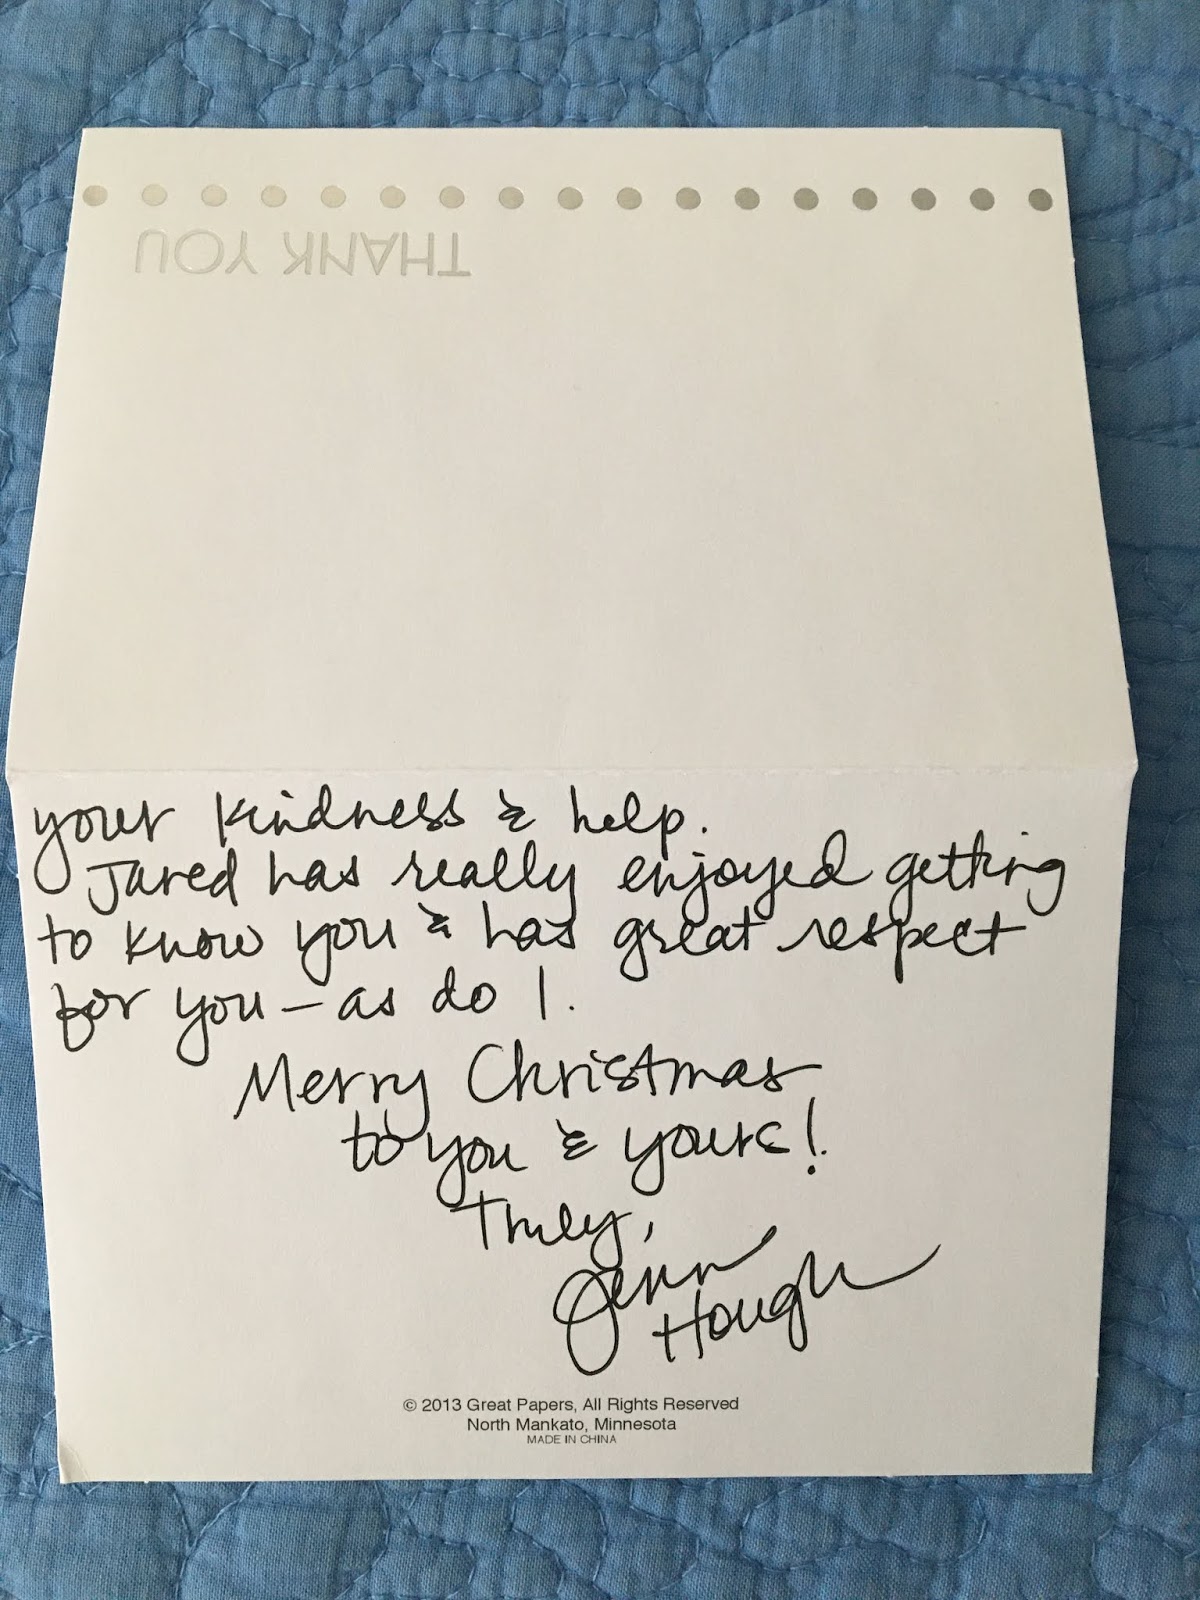 THANK YOU
your kindness & help.
Jared has really enjoyed getting
to know you & has great respect
for you – as do I.
Merry Christmas
to you & yours!
Truly,
Jenn
Hough
© 2013 Great Papers, All Rights Reserved
North Mankato, Minnesota
MADE IN CHINA